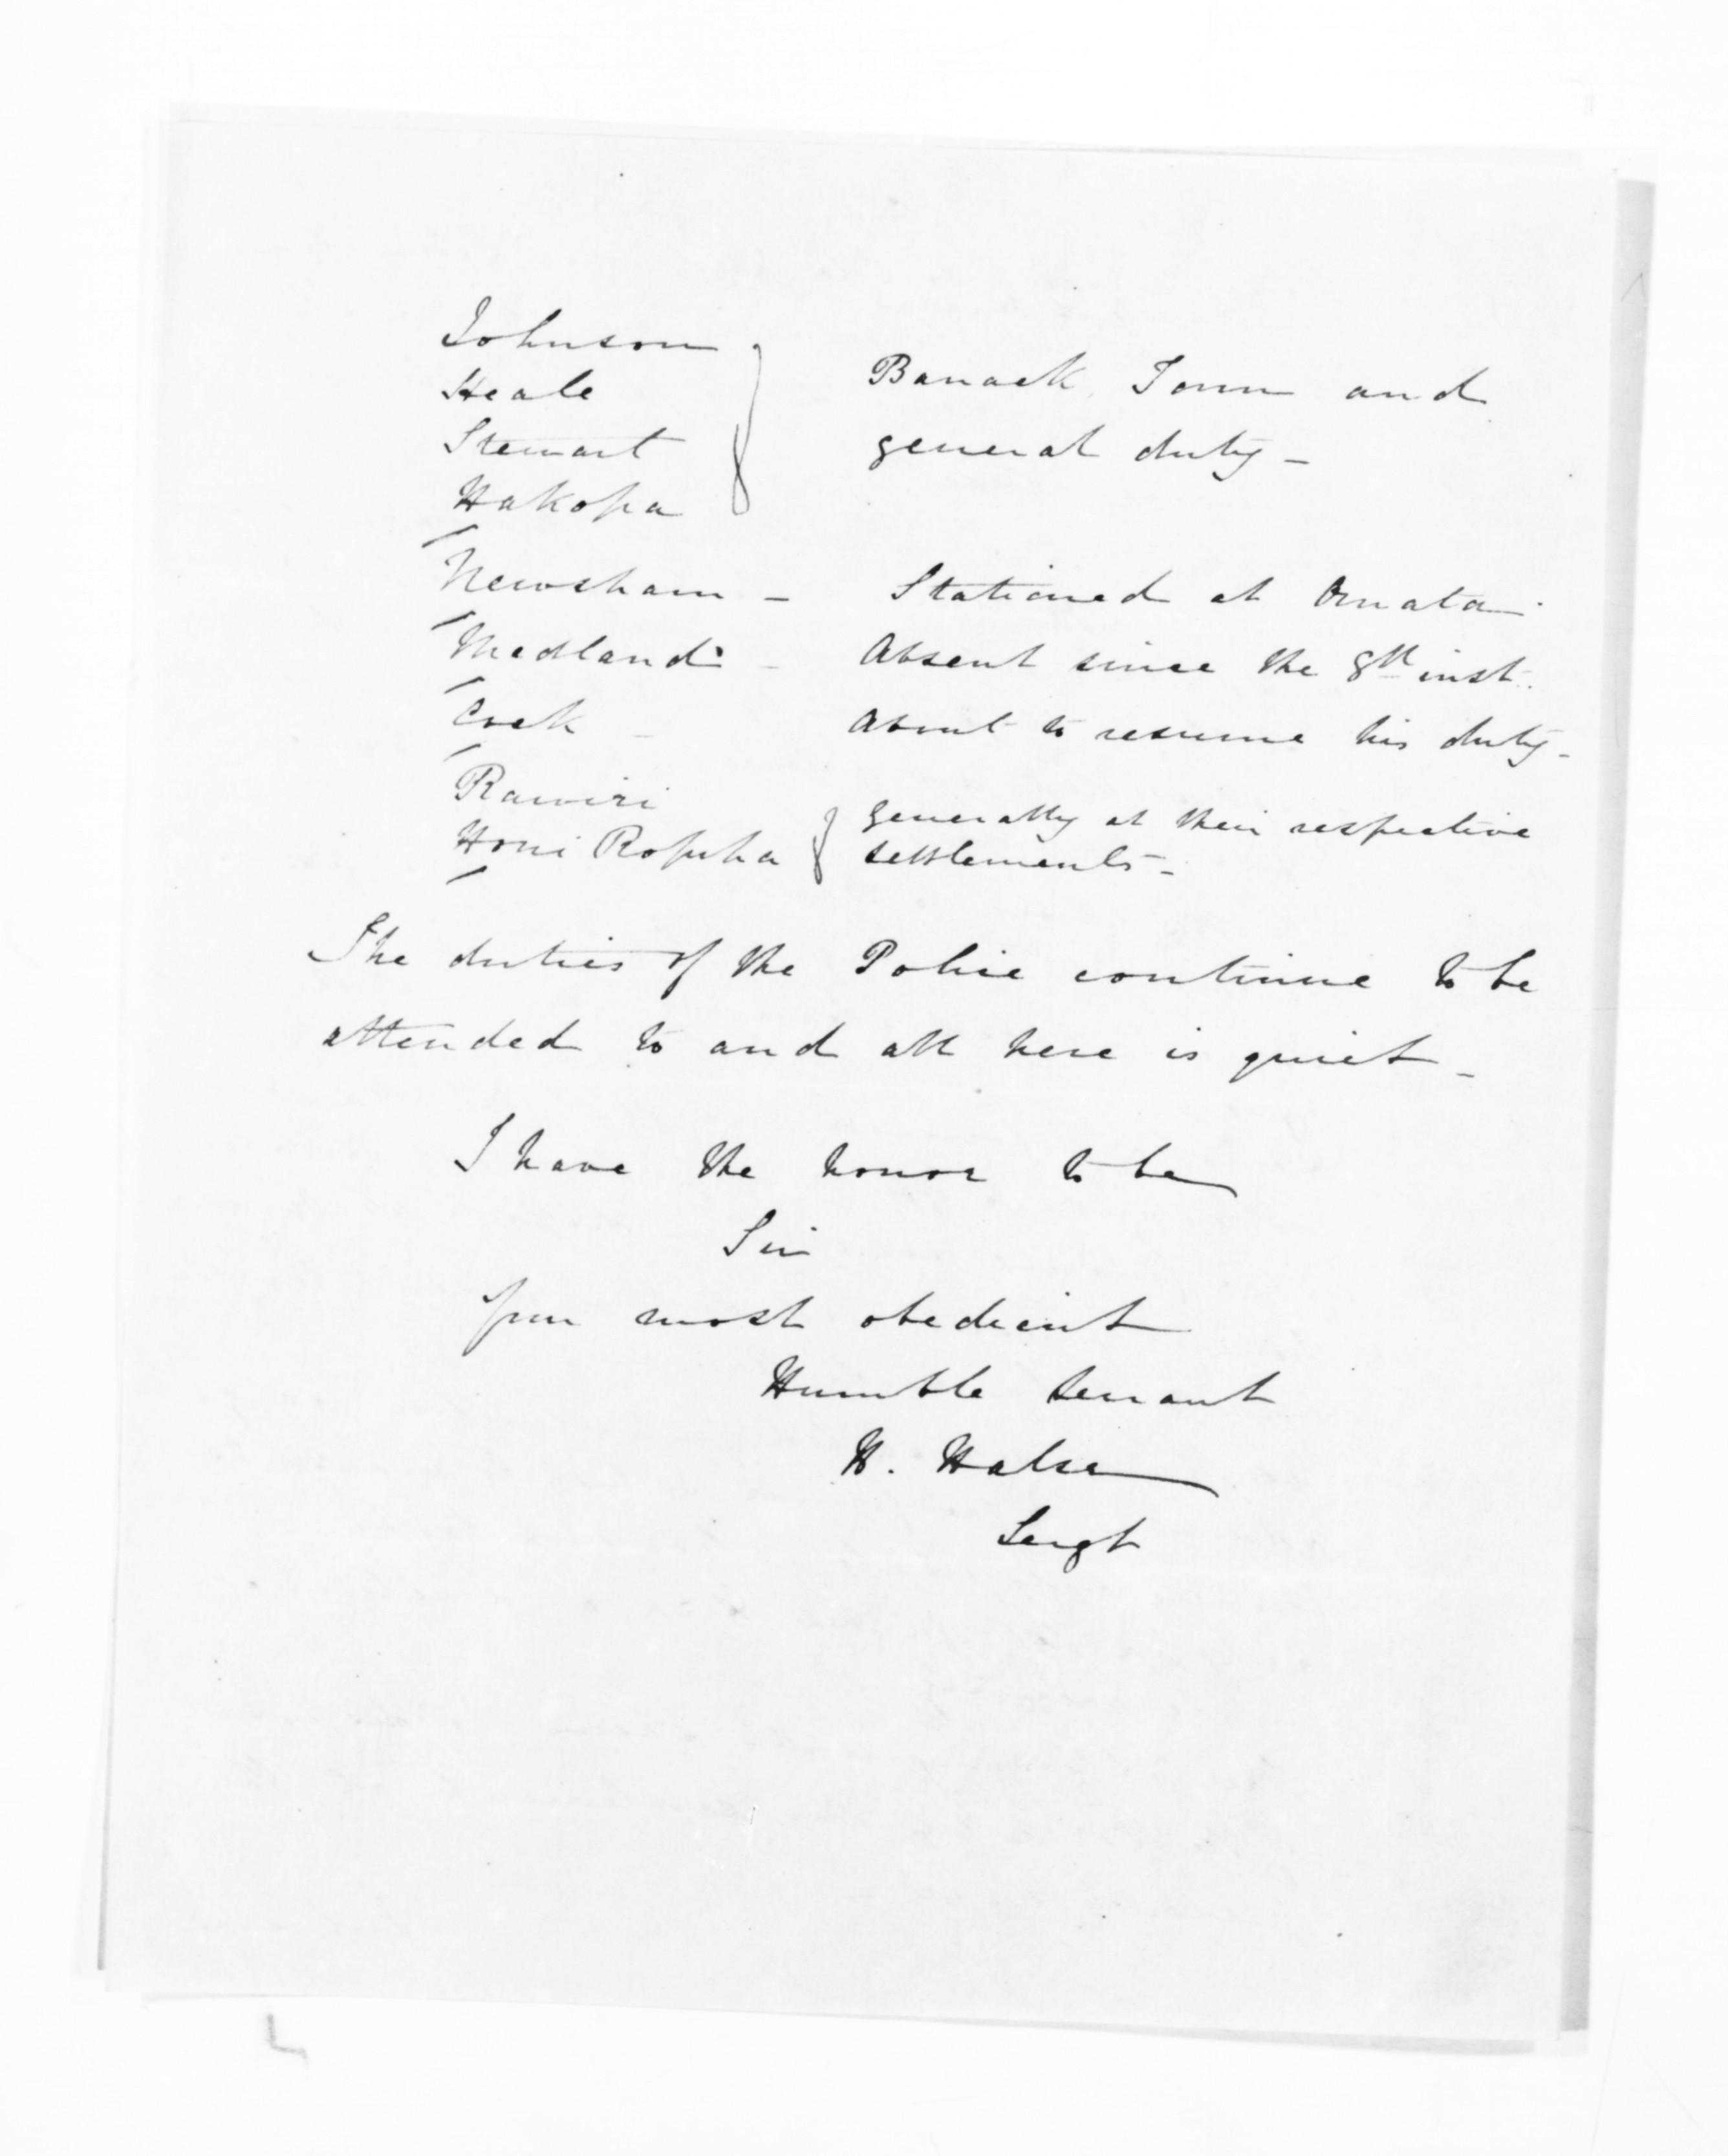 Johnson
Heale
Stewart
Hakopa
Barrack, Town and
general duty -
Newsham - Stationed at Omata.
Medland - Absent since the 8th inst.
Cook - About to resume his duty -
Rawiri
Honi Ropiha
generally at their respective
settlements -
The duties of the Police continue to be
attended to and all here is quiet -
I have the honor to be
Sir
Your most obedient
Humble Servant
H. Halse
Sergt